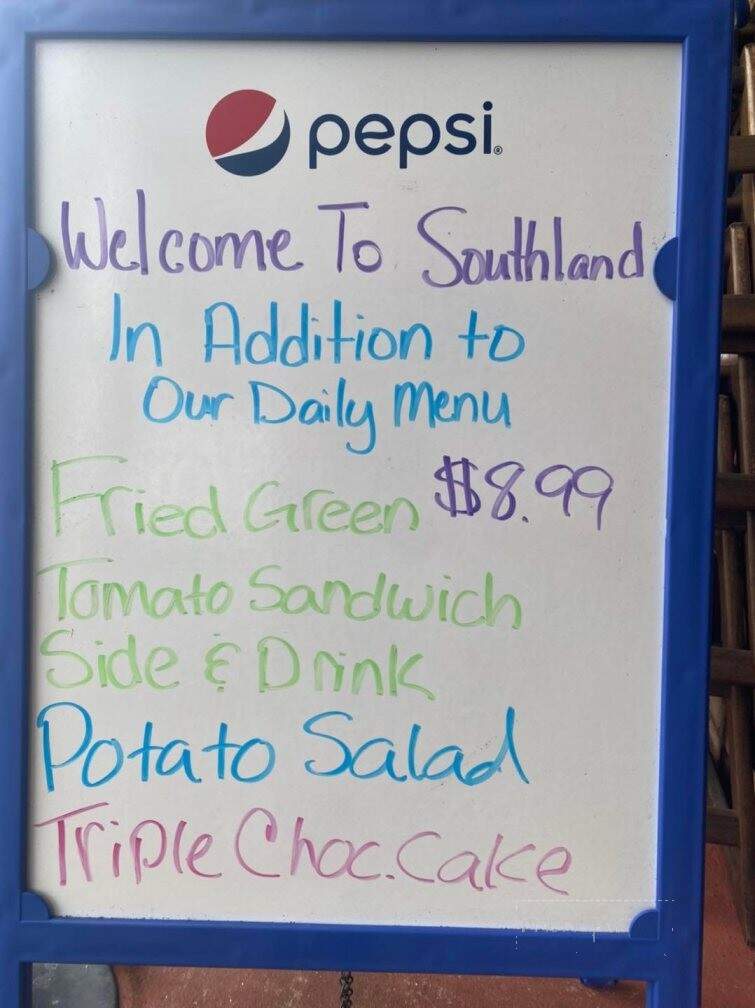 pepsi
Welcome To Southland
In Addition to
Our Daily Menu
Fried Green $8.99
Tomato Sandwich
Side & Drink
Potato Salad
Triple Choc. Cake